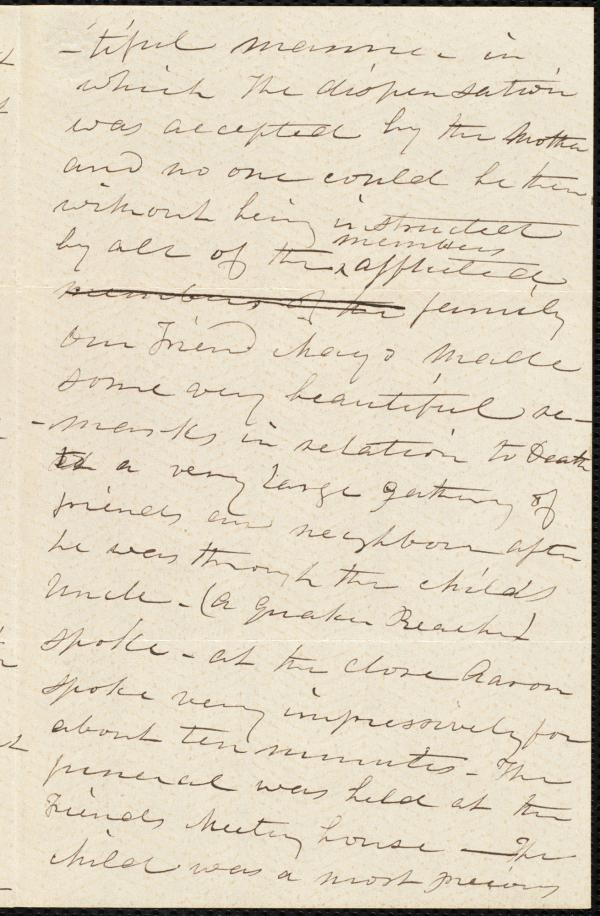 -tiful manner in
which the dispensation
was accepted by the Mother
and no one could be there
without being instructed
members
by all of the ^ afflicted
members of the family
our Friend Mayo made
some very beautiful re-
-marks in relation to Death
to a very large gathering of
friends and neighbours after
he was through the child's
Uncle - (a Quaker Preacher)
spoke - at the close Aaron
spoke very impressively for
about ten minutes - The
funeral was held at the
Friends Meeting house - The
child was a most precious